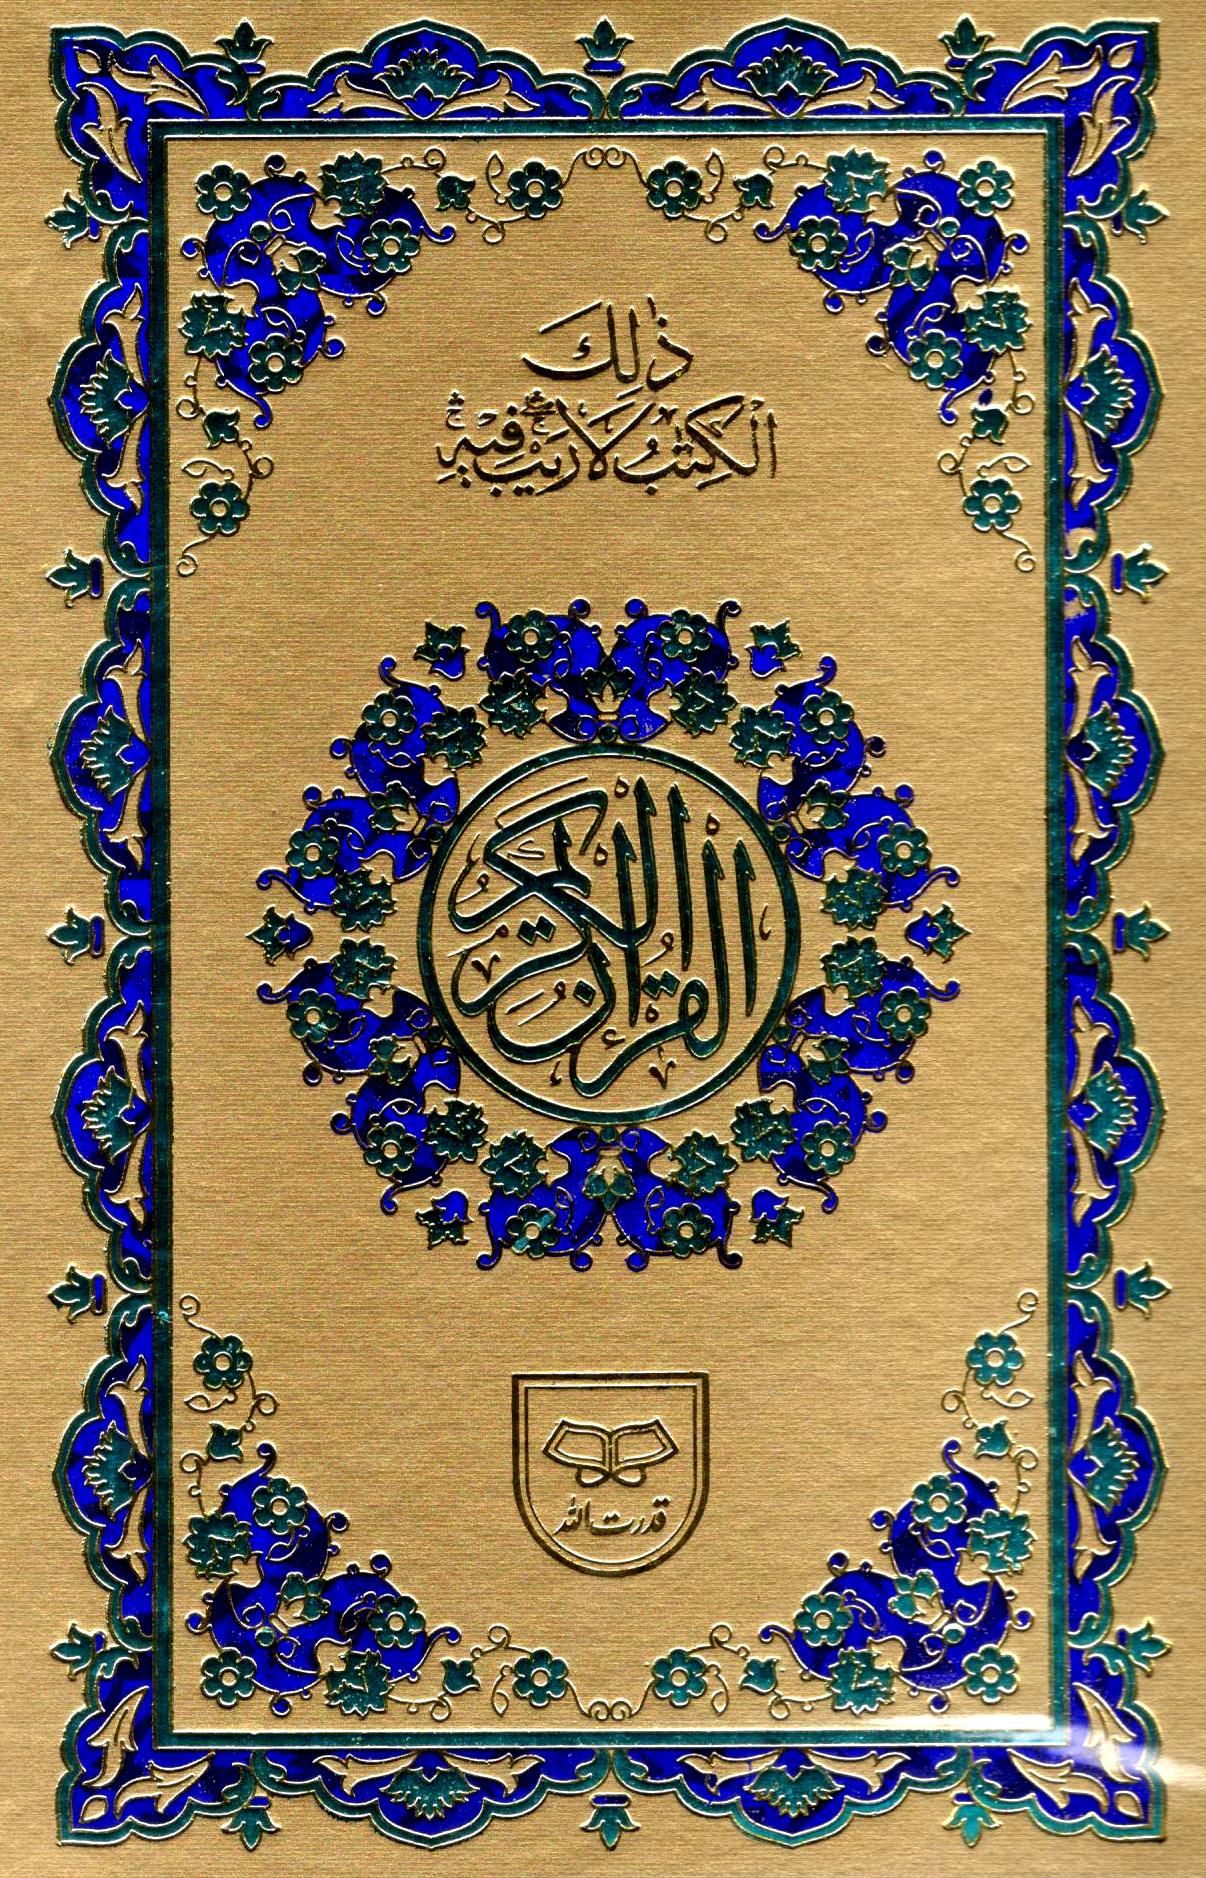 ذٰلِكَ
الْكِتٰبُ لَا رَيْبَ ۛ فِيْهِ ۛ
القرآن الكريم
قدرت الله